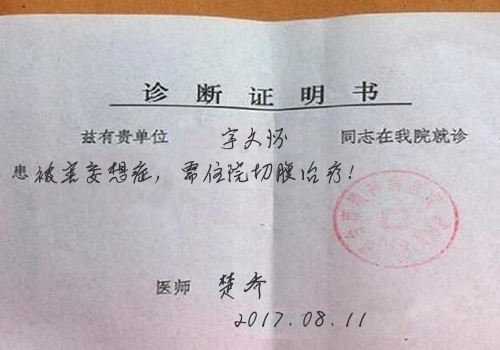 诊断证明书
兹有贵单位 宇文怀 同志在我院就诊
患被害妄想症，需住院切腹治疗！
医师 楚乔
2017.08.11